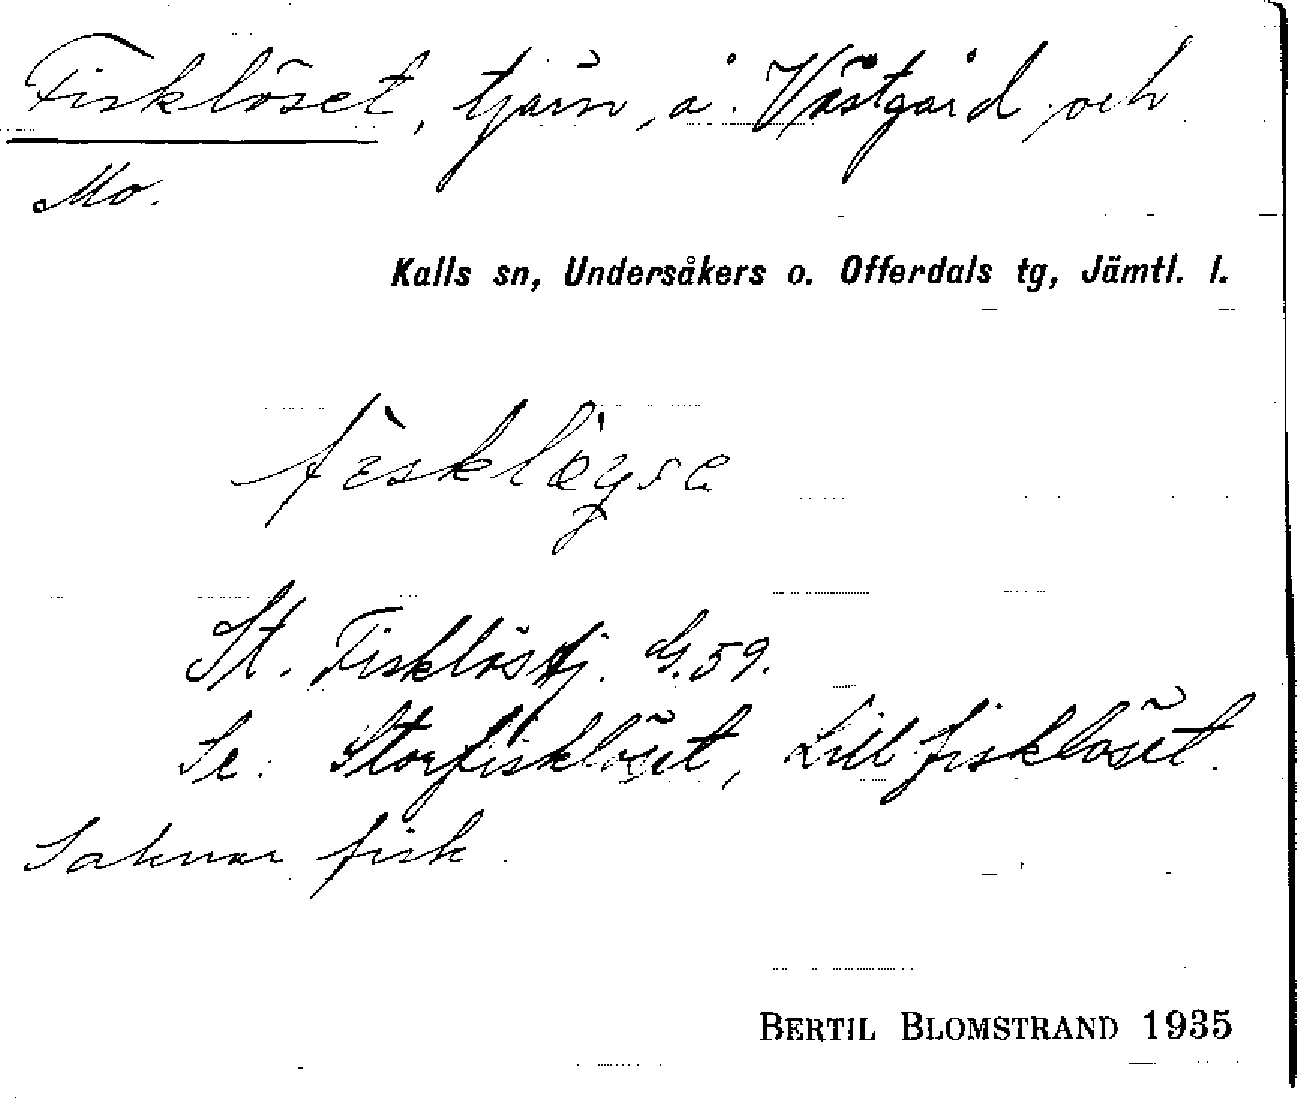 Fisklöset, tjärn, å Västgård och
Mo.
Kalls sn, Undersåkers o. Offerdals tg, Jämtl. l.
St. Fisklöstj. G. 59.
Se: Storfisklöset, Lillfisklöset.
Saknar fisk.
BERTIL BLOMSTRAND 1935